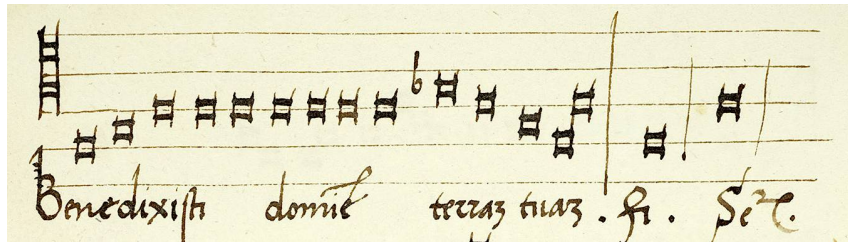 Benedixisti domie terraʒ tuaʒ . fi . Se